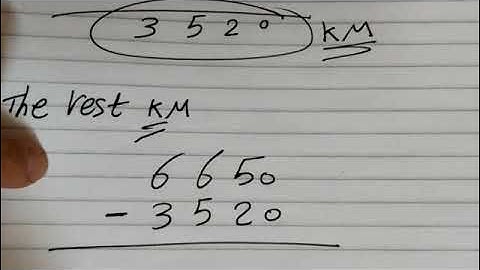 3 5 2 0 KM
The rest KM
6 6 5 0
- 3 5 2 0